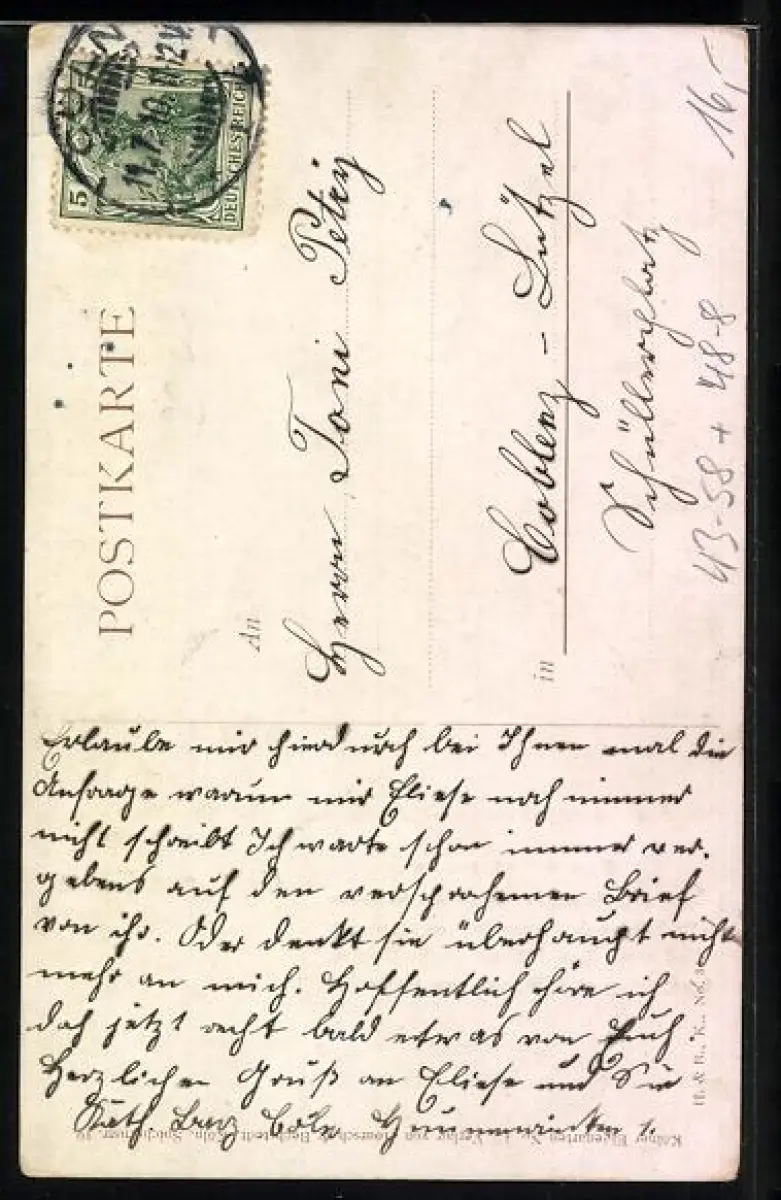 POSTKARTE
CÖLN
11.7.10. 11-12V.
5
DEUTSCHES REICH
An
Herrn Toni Petry
in Coblenz – Lützel
Schüllerplatz
16,-
43-58 + 48-8
Erlaube mir hierdurch bei Ihnen mal die
Anfrage warum mir Eliese noch immer
nicht schreibt Ich warte schon immer ver-
gebens auf den versprochenen Brief
von ihr. Oder denkt sie überhaupt nicht
mehr an mich. Hoffentlich höre ich
doch jetzt recht bald etwas von Euch.
Herzlichen Gruß an Eliese und Sie
Käth. Cöln
Verlag von Hoursch & Bechstedt, Köln
H. & B., K. No.